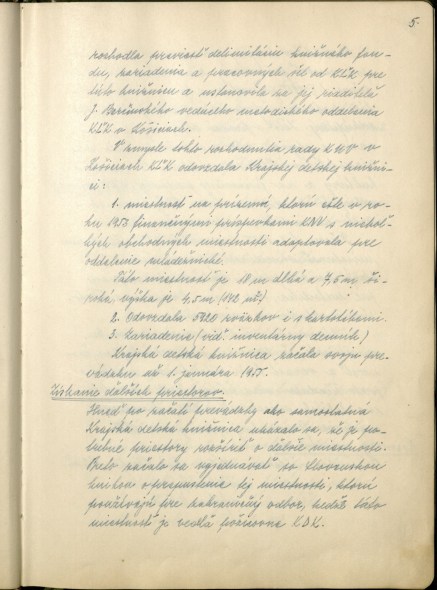 5.
rozhodla previesť delimitáciu knižného fon-
du, zariadenia a pracovných síl od KĽK pre
túto knižnicu a ustanovila za jej riaditeľa
J. vedúceho metodického oddelenia
KĽK v Košiciach.
V zmysle tohto rozhodnutia rady KNV v
Košiciach KĽK odovzdala Krajskej detskej knižni-
ci:
1. miestnosť na prízemí, ktorú ešte v ro-
ku 1953 finančnými príspevkami KNV s niekoľ-
kých obchodných miestností adaptovala pre
oddelenie mládežnícke.
Táto miestnosť je 18 m dlhá a 7,5 m ši-
roká, výška je 4,5 m
2. Odovzdala 5920 sväzkov i s kartotékami.
3. Zariadenia (viď. inventárny denník)
Krajská detská knižnica začala svoju pre-
vádzku už 1. januára 1955.
Získanie ďalších priestorov.
Hneď po začatí prevádzky ako samostatná
Krajská detská knižnica ukázalo sa, že je po-
trebné priestory rozšíriť o ďalšie miestnosti.
Preto začalo sa vyjednávať so Slovenskou
knihou o prepustenie tej miestnosti, ktorú
používajú pre zahraničný odbor, keďže táto
miestnosť je vedľa požičovne KDK.